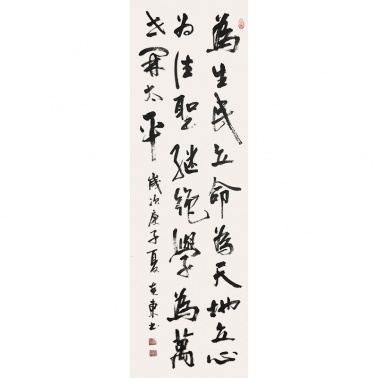 為生民立命為天地立心
為往聖繼絕學為萬
世開太平 歲次庚子夏 東書